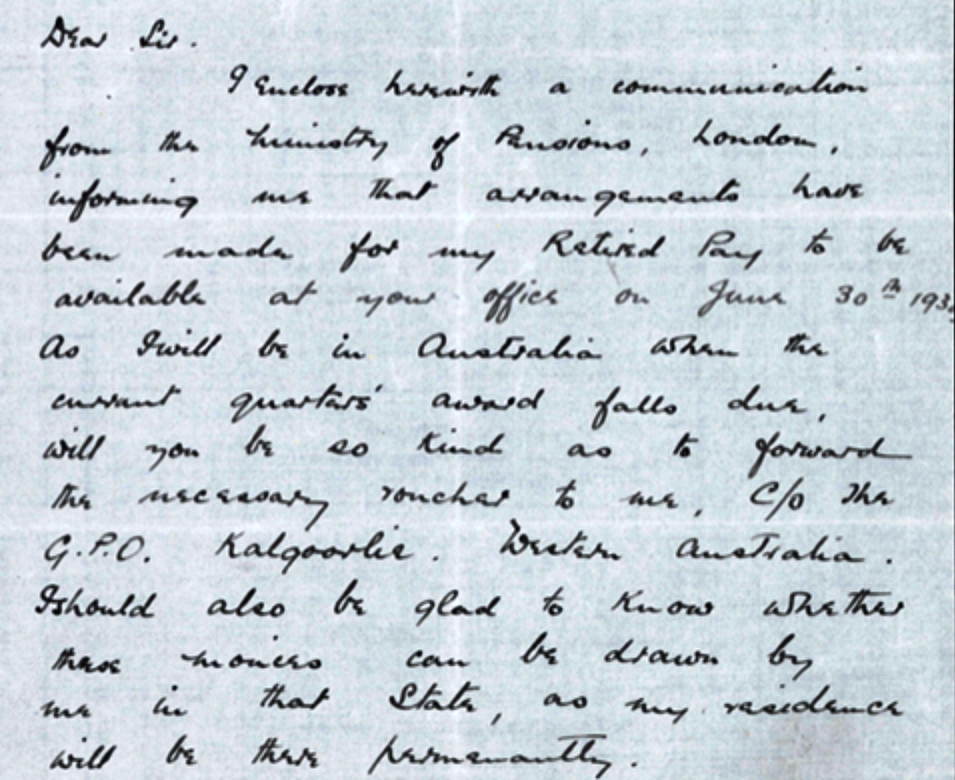 Dear Sir.
I Enclose herewith a communication
from the Ministry of Pensions, London,
informing me that arrangements have
been made for my Retired Pay to be
available at your office on June 30th
As I will be in Australia when the
current quarters' award falls due,
will you be so kind as to forward
the necessary voucher to me, C/o The
G.P.O. Kalgoorlie. Western Australia.
I should also be glad to know whether
these monies can be drawn by
me in that State, as my residence
will be there permanently.